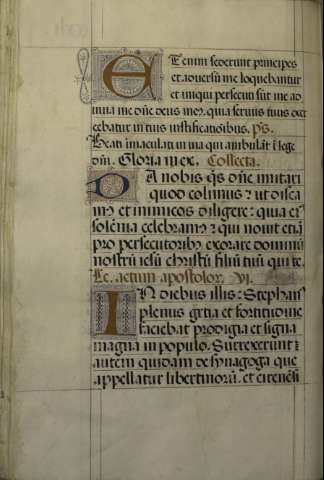 Etenim sederunt principes
et adversū me loquebantur
et iniqui persecuti sūt me ad
iuua me dn̄e deus meꝰ. quia seruus tuus exer
cebatur in tuis iustificationibus. p̄s.
Beati īmaculati in uia qui ambulāt ī lege
dn̄i. Gloria ut ex. Collecta.
DA nobis qs̄ dn̄e imitari
quod colimus: ut disca
mꝰ et inimicos diligere: quia eiꝰ
solēnia celebramꝰ: qui nouit etiā
pro persecutoribꝰ exorare dominū
nostrū iesū christū filiū tuū qui te.
Lc. actum apostolor. VI.
IN diebus illis: Stephanꝰ
plenus grtia et fortitudine
faciebat prodigia et signa
magna in populo. Surrexerunt
autem quidam de synagoga que
appellatur libertinorū. et cirenēsi